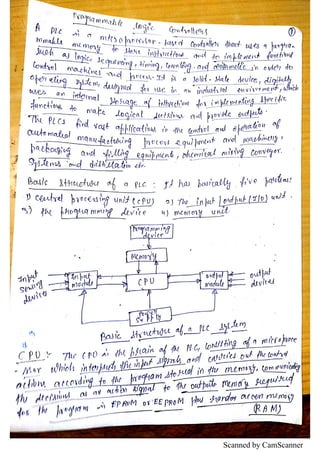 Programmable Logic Controllers
1
A PLC is a microprocessor-based controller that uses a progra-
mmable memory to store instructions and to implement functions
such as logic, sequencing, timing, counting and arithmetic in order to
control machines and process. It is a solid-state device, digitally
operating system, designed for use in an industrial environment, which
uses an internal storage of instruction for implementing specific
functions to make logical decisions and provide outputs.
-The PLCs find vast applications in the control and operation of
automated manufacturing process equipment and machinery,
packaging and filling equipment, chemical mixing conveyor
systems and distillation etc.
Basic Structure of a PLC : It has basically five
1) central processing unit (CPU) 2) The input/output (I/O) unit.
3) the programming device 4) memory unit
Programming
device
Memory
Input
sensing
devices
Input
module
CPU
output
module
output
devices
supply
Basic Structure of a PLC System
CPU:- The CPU is the brain of the PLC, consisting of a microproce
-ssor which interprets the input signals and carries out the control
actions according to the program stored in the memory, communicating
the decisions as an action signal to the outputs. Memory required
for the program is EPROM or EEPROM plus random access memory
(RAM)
Scanned by CamScanner